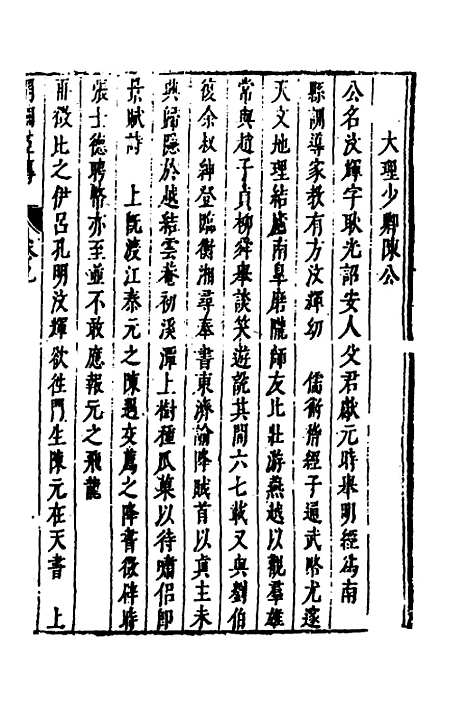 大理少卿陳公
公名汝輝字耿光詔安人父君獻元時舉明經為南
縣訓導家教有方汝輝幼 儒術脩經子通武略尤邃
天文地理結廬南臯磨隴師友比壯游燕越以觀羣雄
常與趙子貞柳舜舉談笑遊說其間六七載又與劉伯
復余权紳登臨衡湘尋奉書東濟諭降賊首以真主未
興歸隱於越結雲菴初溪潭上樹種瓜菓以待嘯侶即
景賦詩 上旣渡江秦元之陳遇交薦之降書徵辟時
張士德聘幣亦至並不敢應報元之飛龍
而徵比之伊呂孔明汝輝欲徃門生陳元在天書 上